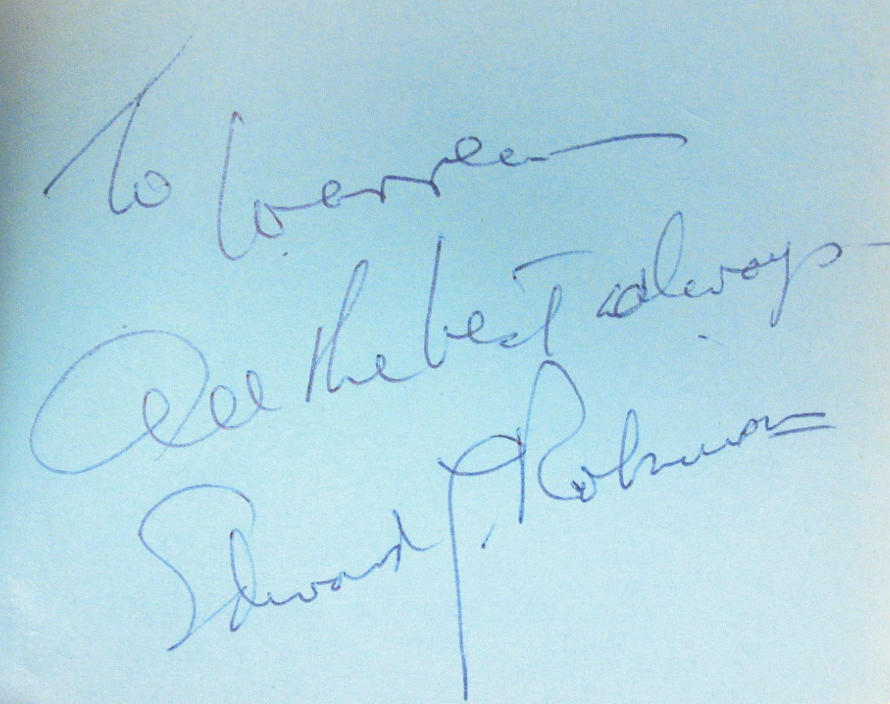 To Warren
All the best always
Edward G. Robinson